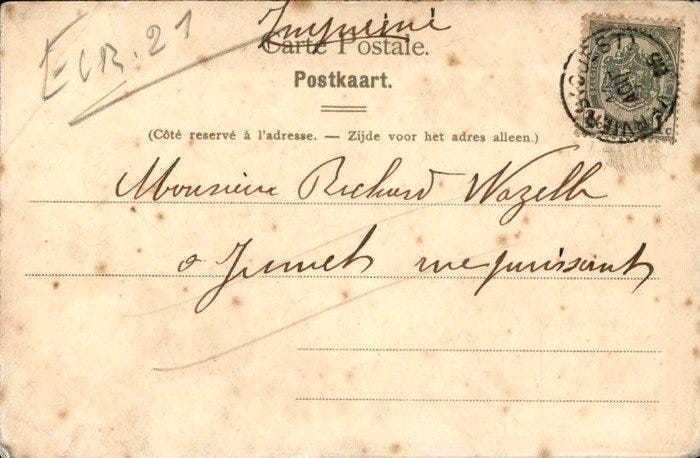 ECR. 21
Imprimé
Carte Postale.
Postkaart.
(Côté reservé à l'adresse. — Zijde voor het adres alleen.)
Monsieur Richard Wazelle
à Jumet